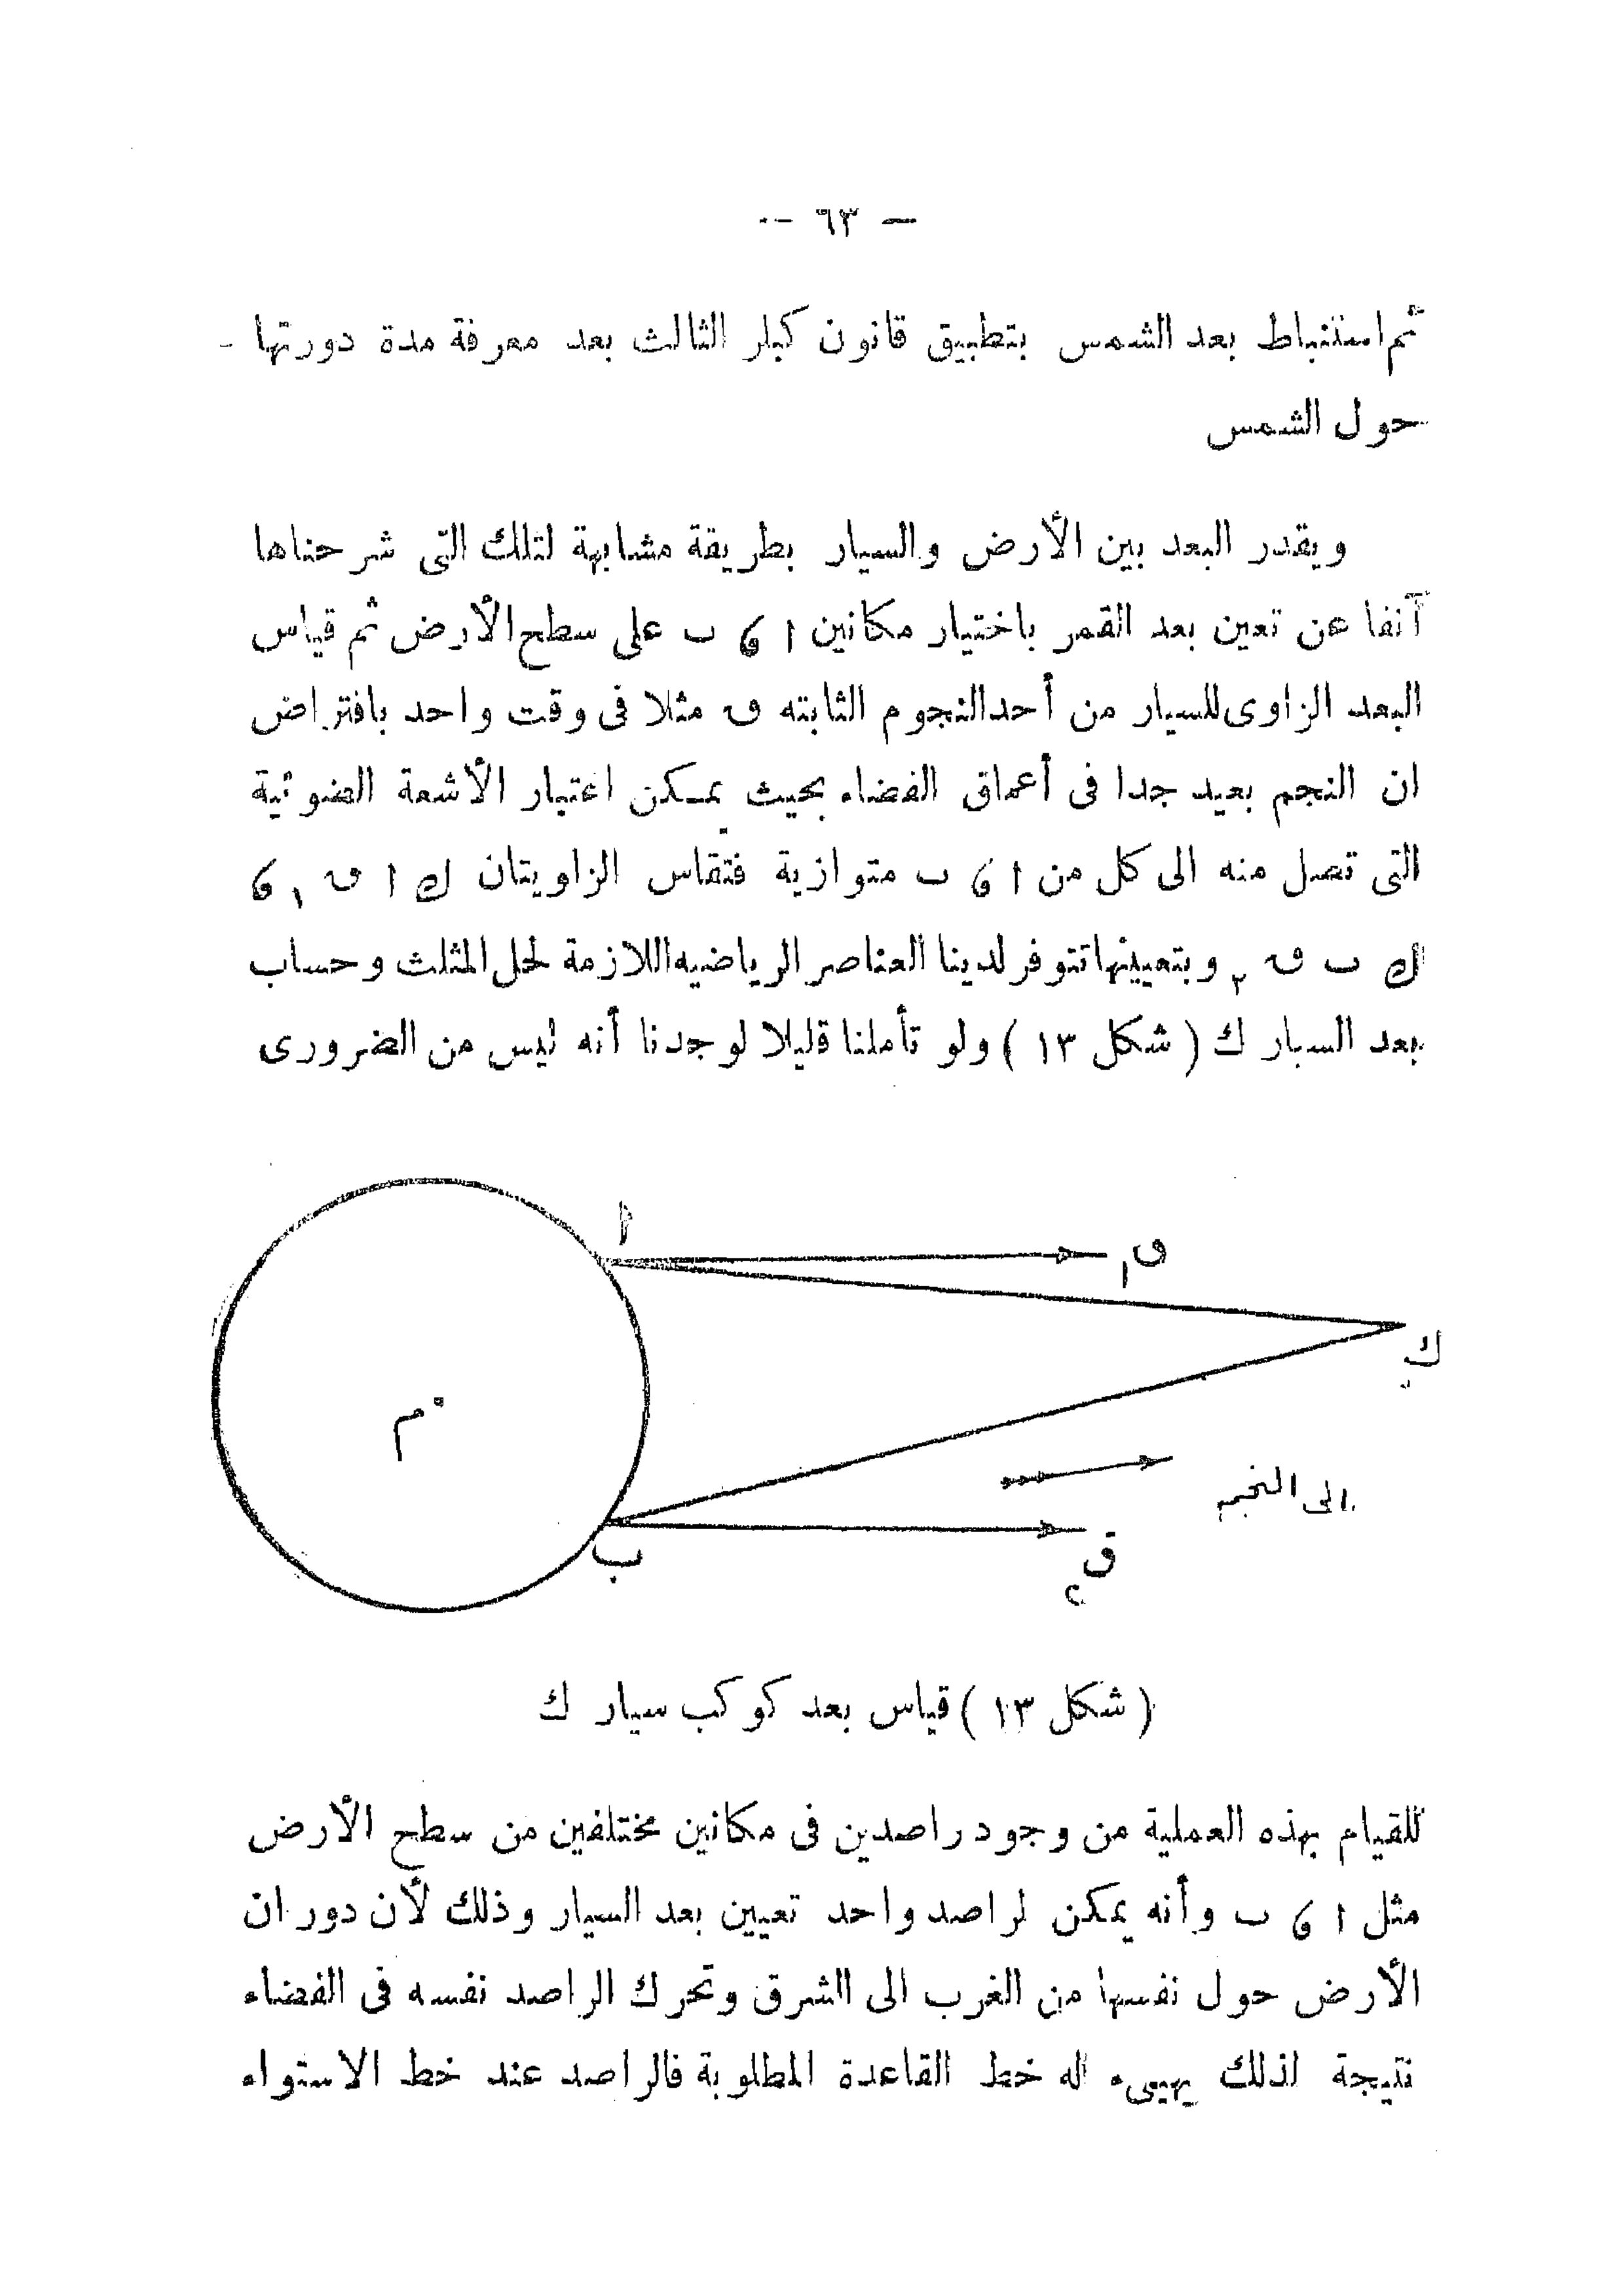 — ٦٣ —
ثم استنباط بعد الشمس بتطبيق قانون كبلر الثالث بعد معرفة مدة دورتها -
حول الشمس
ويقدر البعد بين الأرض والسيار بطريقة مشابهة لتلك التى شرحناها
آنفا عن تعين بعد القمر باختيار مكانين ا ، ب على سطح الأرض ثم قياس
البعد الزاوى للسيار من أحد النجوم الثابته ق مثلا فى وقت واحد بافتراض
ان النجم بعيد جدا فى أعماق الفضاء بحيث يمكن اعتبار الأشعة الضوئية
التى تصل منه الى كل من ا ، ب متوازية فتقاس الزاويتان ك ا ق ١ ،
ك ب ق ٢ وبتعيينها تتوفر لدينا العناصر الرياضيه اللازمة لحل المثلث وحساب
بعد السيار ك ( شكل ١٣ ) ولو تأملنا قليلا لوجدنا أنه ليس من الضرورى
أ
ق ١
ك
م
الى النجم
ب
ق ٢
( شكل ١٣ ) قياس بعد كوكب سيار ك
للقيام بهذه العملية من وجود راصدين فى مكانين مختلفين من سطح الأرض
مثل ا ، ب وأنه يمكن لراصد واحد تعيين بعد السيار وذلك لأن دوران
الأرض حول نفسها من الغرب الى الشرق وتحرك الراصد نفسه فى الفضاء
نتيجة لذلك يهيىء له خط القاعدة المطلوبة فالراصد عند خط الاستواء